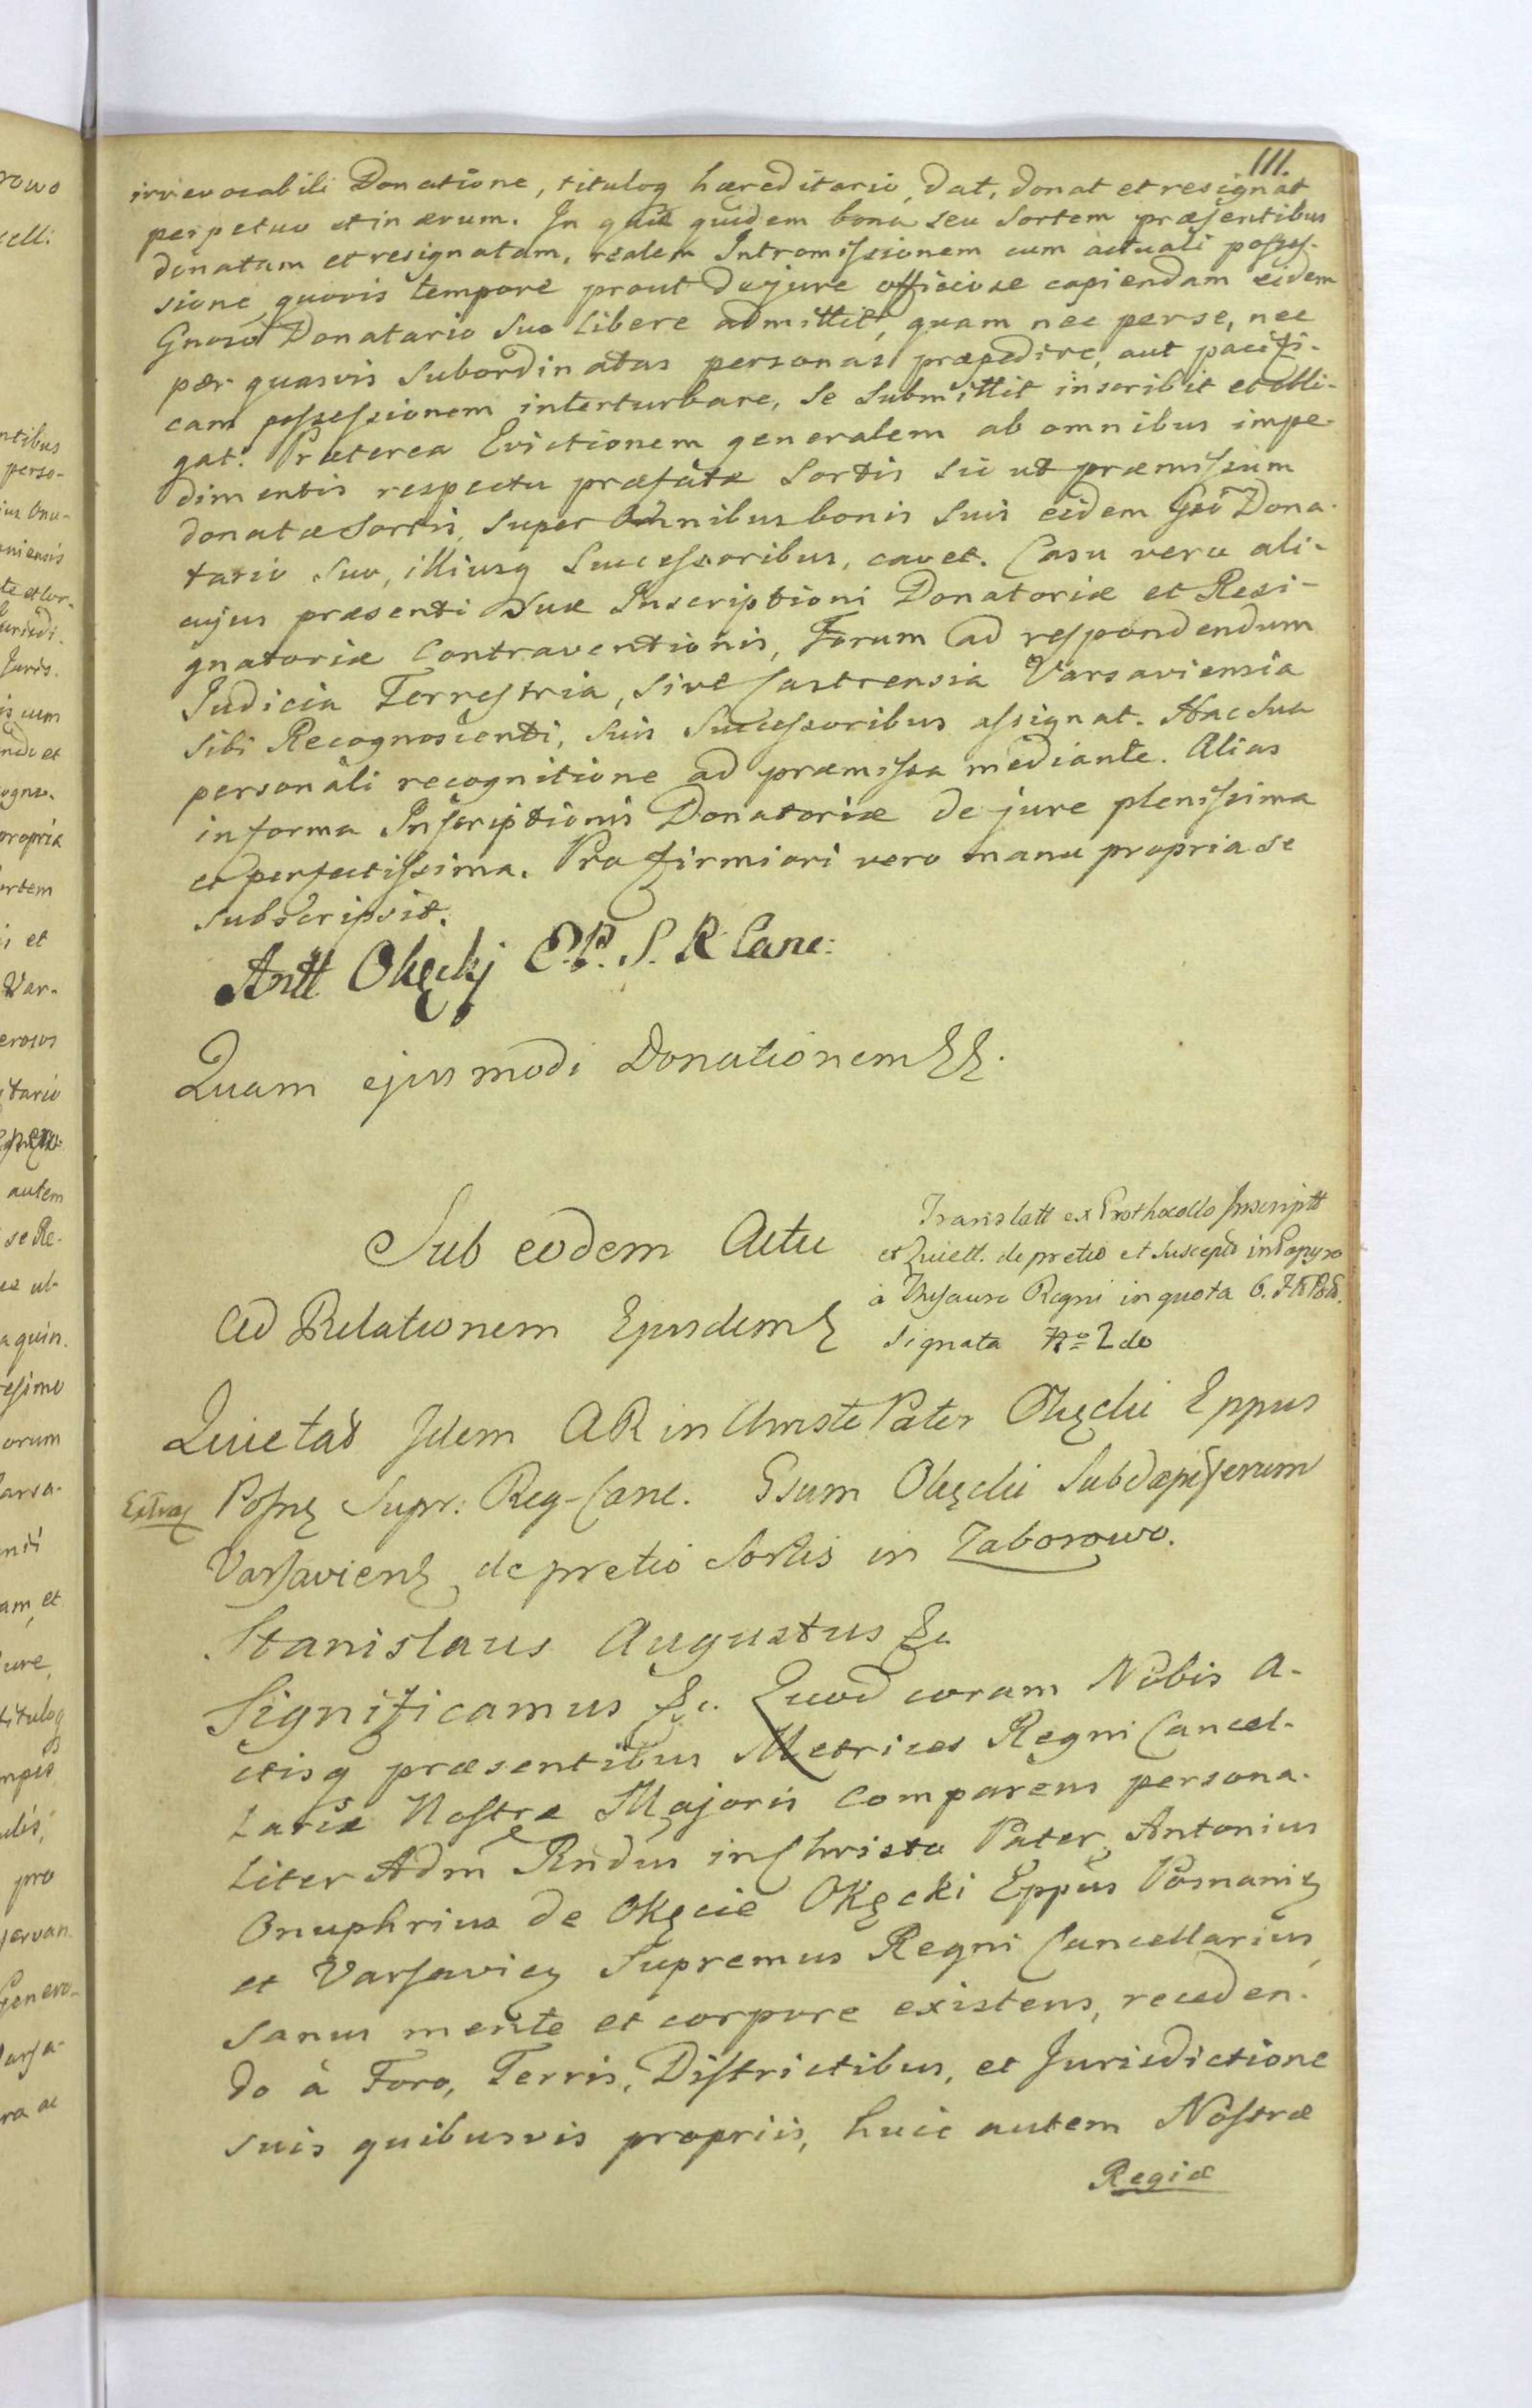 111.
irrevocabili Donatione, tituloq hæreditario, dat, donat et resignat
perpetuo et in ævum. In quæ quidem bona seu Sortem præsentibus
donatam et resignatam, realem Intromissionem cum actuali posses-
sione, quovis tempore prout de jure officiose capiendam eidem
Gnoso Donatario suo libere admittit, quam nec per se, nec
per quasvis subordinatas personas præpedire, aut pacifi-
cam possessionem interturbare, se submittit inscribit et obli-
gat. Præterea Evictionem generalem ab omnibus impe-
dimentis respectu præfatæ Sortis sic ut præmissum
donatæ Sortis, super omnibus bonis suis eidem Gso Dona-
tario suo, illiusq Successoribus, cavet. Casu vero ali-
cujus præsenti suæ Inscriptioni Donatoriæ et Resi-
gnatoriæ Contraventionis, Forum ad respondendum
Judicia Terrestria, sive Castrensia Varsaviensia
sibi Recognoscenti, suis Successoribus assignat. Hac sua
personali recognitione ad præmissa mediante. Alias
in forma Inscriptionis Donatoriæ de jure plenissima
et perfectissima. Pro firmiori vero manu propria se
subscripsit.
Antt Okęckj E. P. S. R Canc:
Quam ejusmodi Donationem &&.
Sub eodem Actu
Ad Relationem Ejusdem
Translatt ex Prothocollo Inscriptt
et Quiett. de pretio et suscepto in Papyro
a Thesauro Regni in quota 6.
signata No 2do
Quietat Idem AR in Christo Pater Okęcki Eppus
Posn Supr: Reg-Canc. Gsum Okęcki Subdapiferum
Varsavien de pretio Sortis in Zaborowo.
Stanislaus Augustus &c.
Significamus &c. Quod coram Nobis A-
ctisq præsentibus Metrices Regni Cancel-
lariæ Nostræ Majoris comparens persona-
liter Adm Rndus in Christo Pater Antonius
Onuphrius de Okęcie Okęcki Eppus Posnanien
et Varsavien Supremus Regni Cancellarius,
sanus mente et corpore existens, receden-
do à Foro, Terris, Districtibus, et Jurisdictione
suis quibusvis propriis, huic autem Nostræ
Regiæ